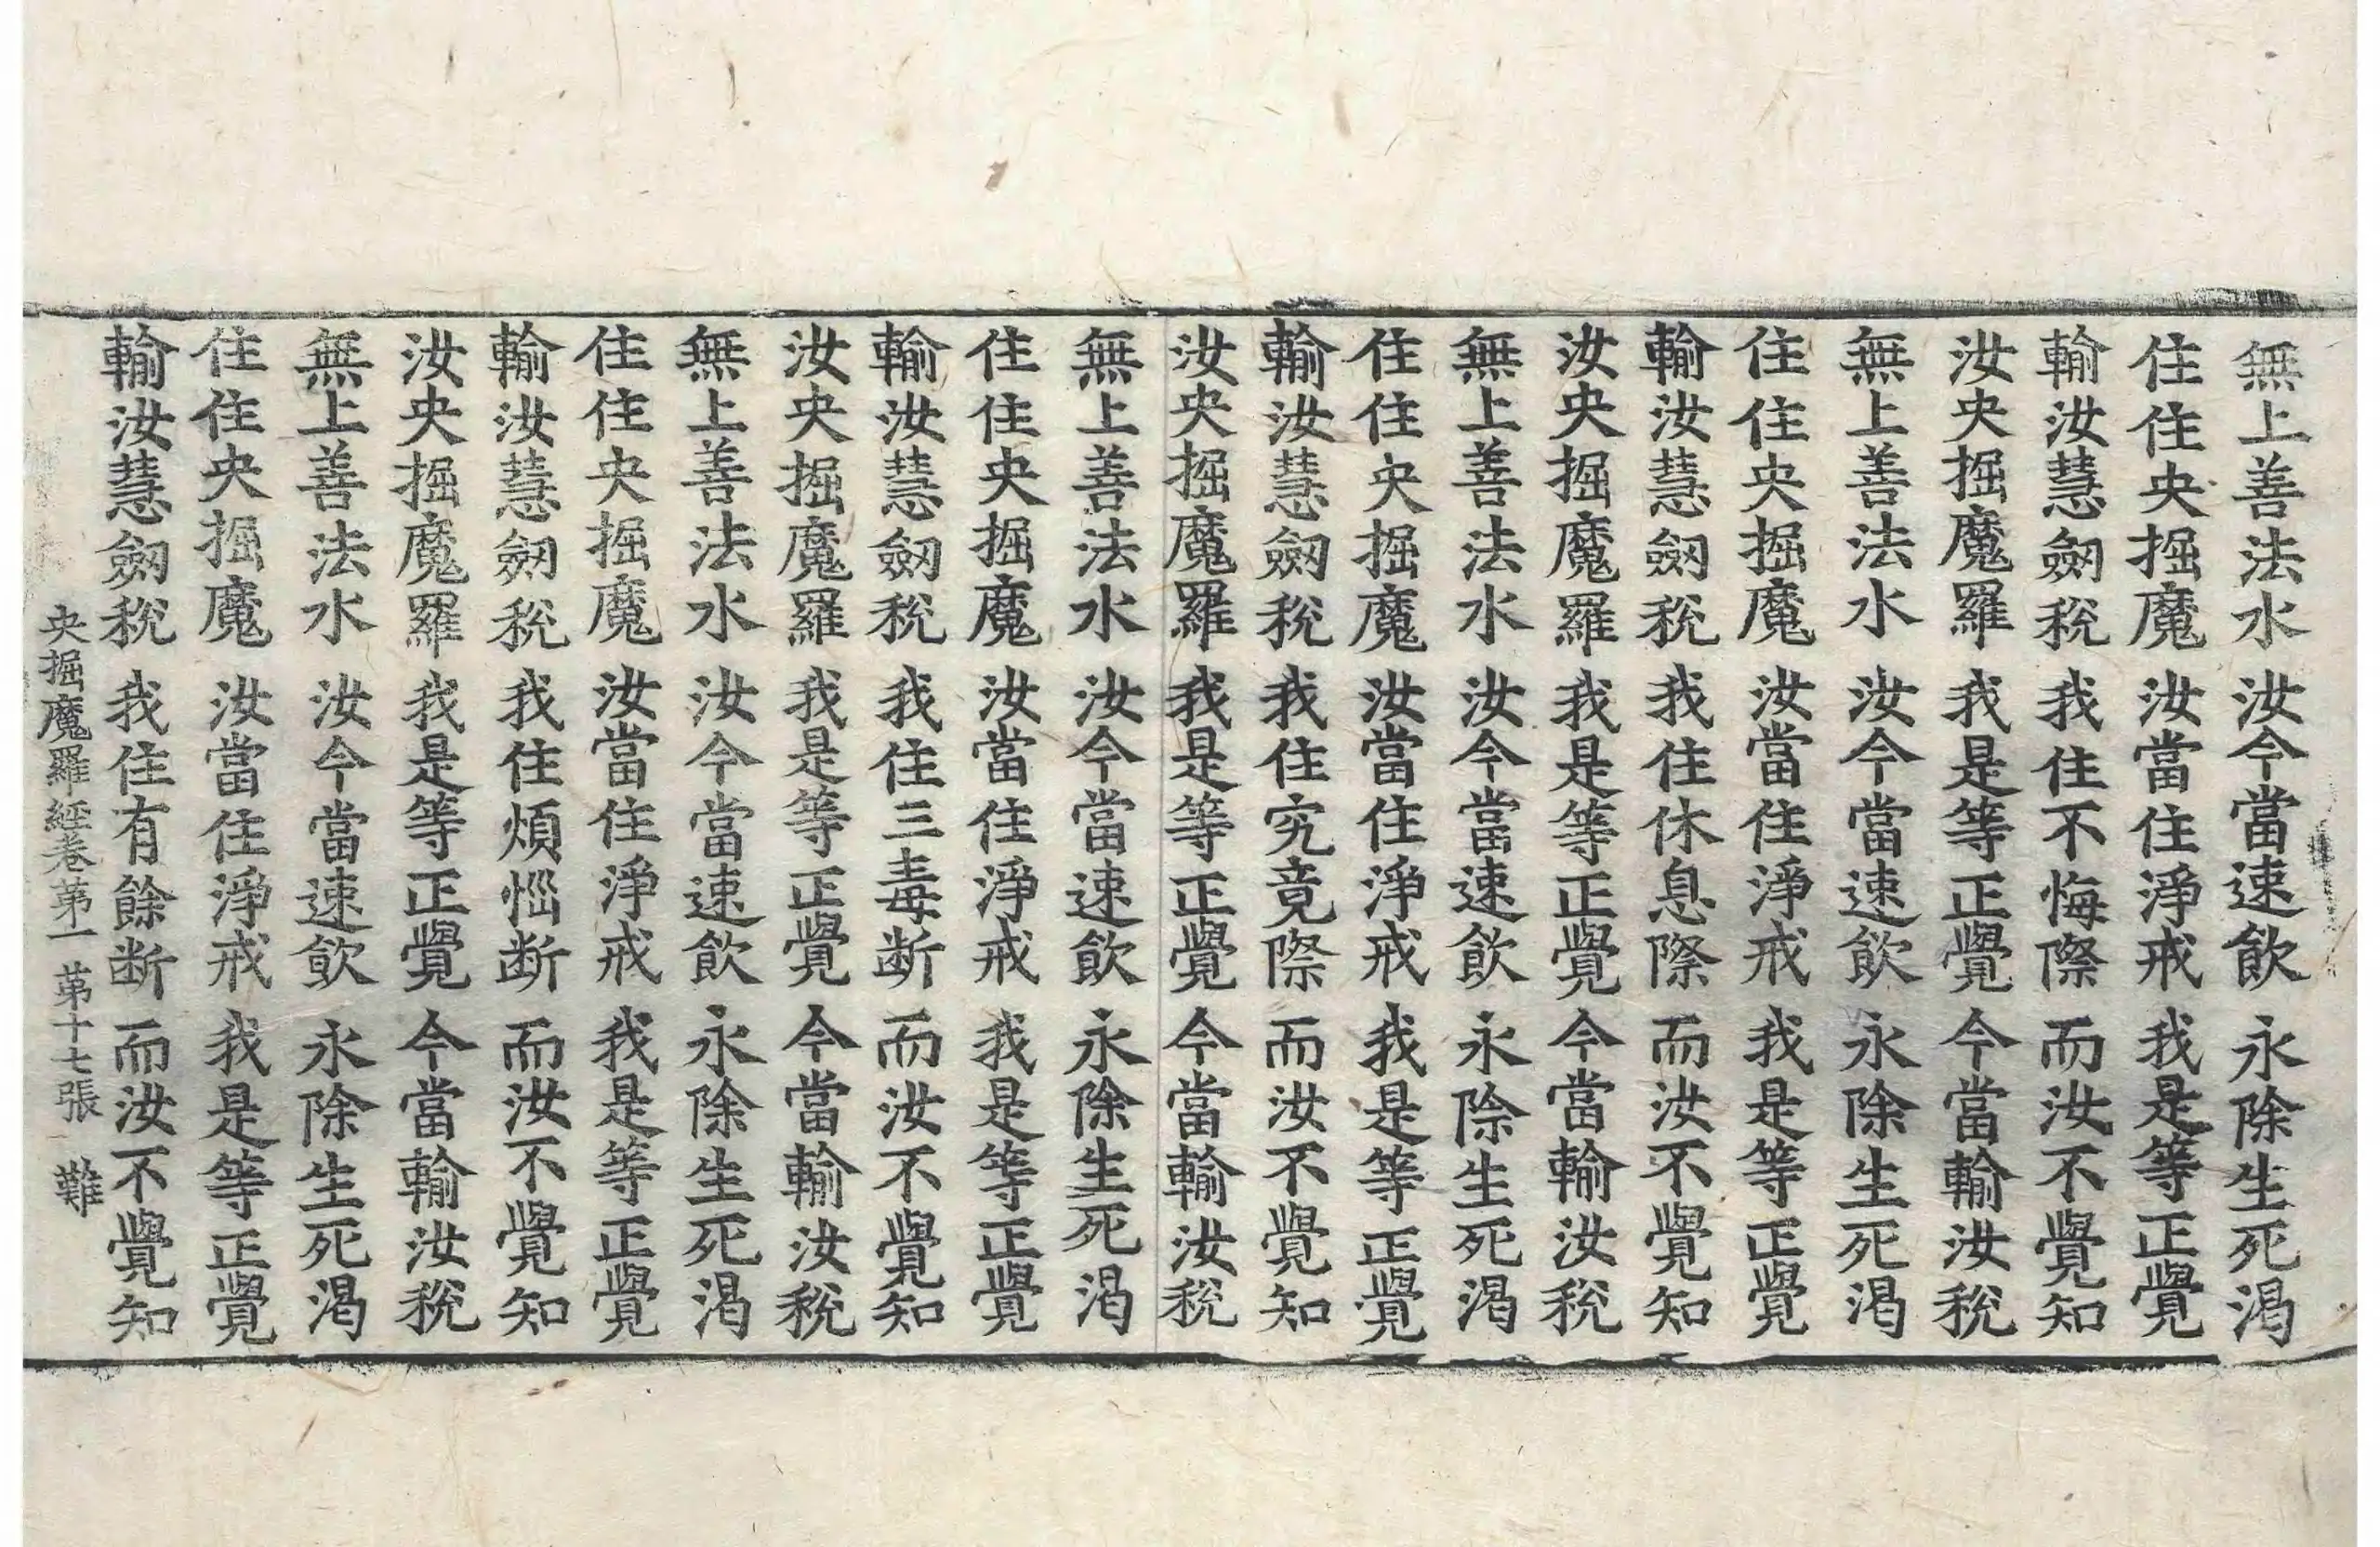 無上善法水 汝今當速飲 永除生死渴
住住央掘魔 汝當住淨戒 我是等正覺
輸汝慧劒稅 我住不悔際 而汝不覺知
汝央掘魔羅 我是等正覺 今當輸汝稅
無上善法水 汝今當速飲 永除生死渴
住住央掘魔 汝當住淨戒 我是等正覺
輸汝慧劒稅 我住休息際 而汝不覺知
汝央掘魔羅 我是等正覺 今當輸汝稅
無上善法水 汝今當速飲 永除生死渴
住住央掘魔 汝當住淨戒 我是等正覺
輸汝慧劒稅 我住究竟際 而汝不覺知
汝央掘魔羅 我是等正覺 今當輸汝稅
無上善法水 汝今當速飲 永除生死渴
住住央掘魔 汝當住淨戒 我是等正覺
輸汝慧劒稅 我住三毒断 而汝不覺知
汝央掘魔羅 我是等正覺 今當輸汝稅
無上善法水 汝今當速飲 永除生死渴
住住央掘魔 汝當住淨戒 我是等正覺
輸汝慧劒稅 我住煩惱断 而汝不覺知
汝央掘魔羅 我是等正覺 今當輸汝稅
無上善法水 汝今當速飲 永除生死渴
住住央掘魔 汝當住淨戒 我是等正覺
輸汝慧劒稅 我住有餘断 而汝不覺知
央掘魔羅經卷第一 第十七張 難